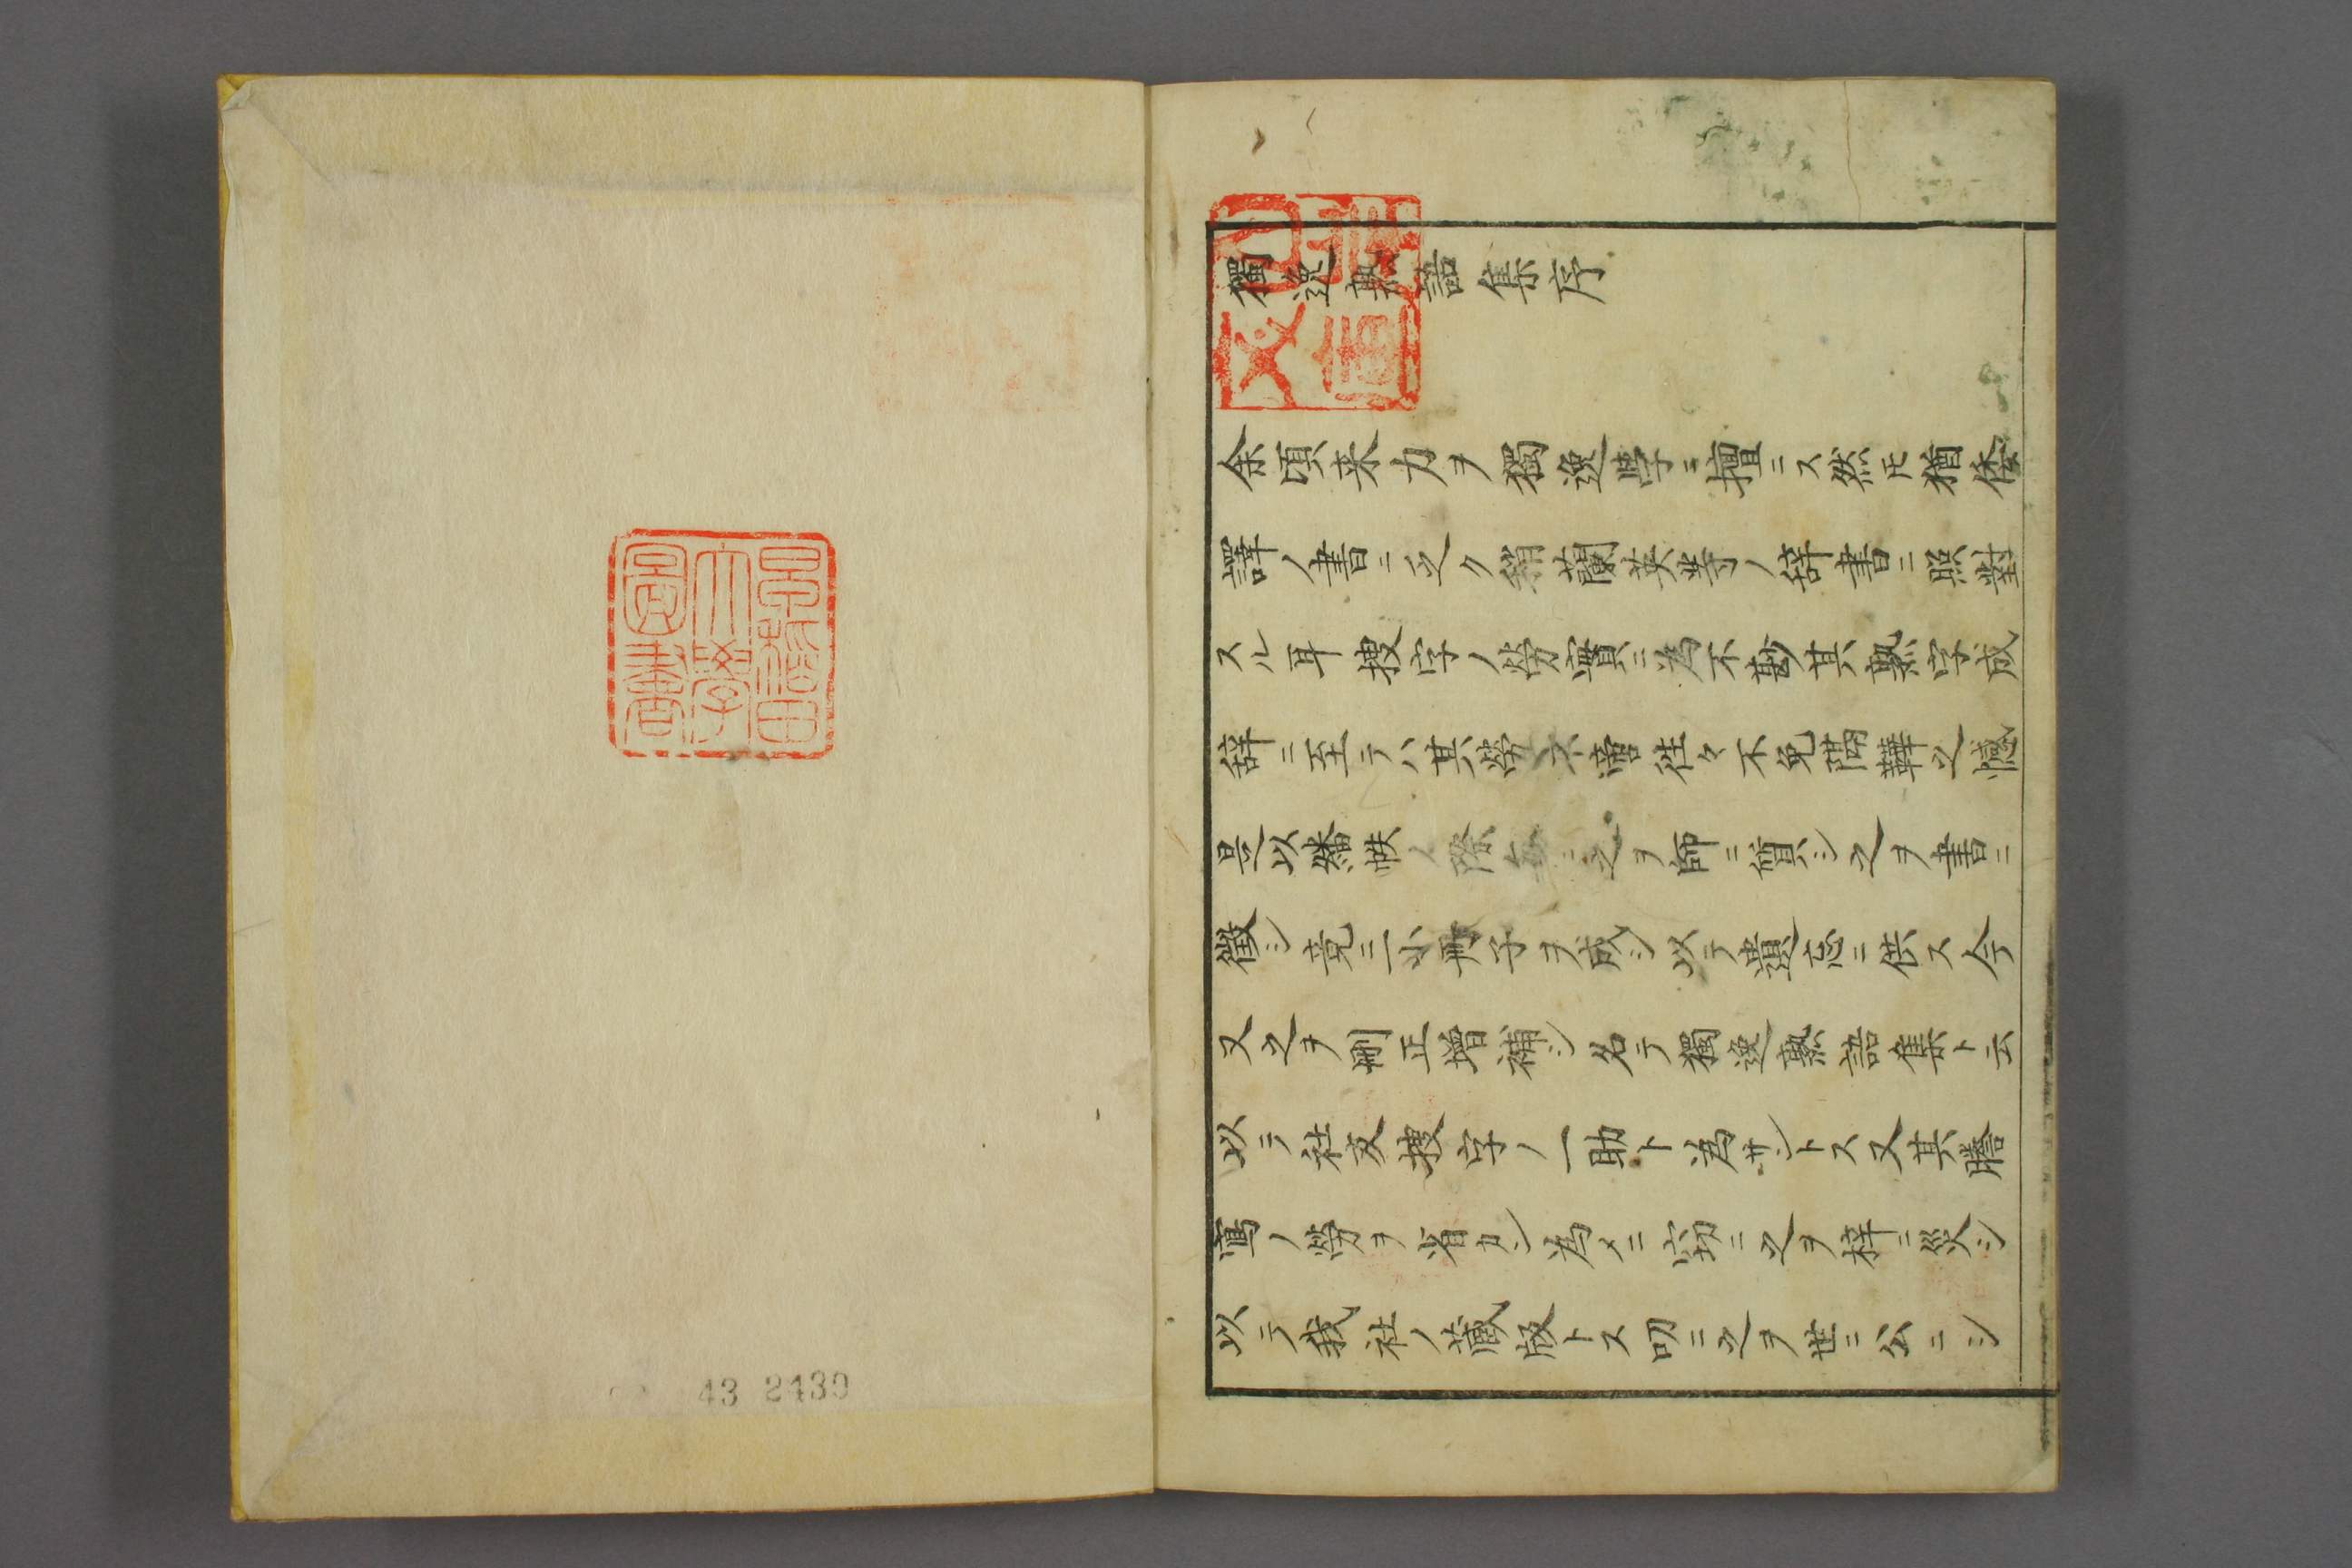 早稻田
大學
圖書
43 2439
獨逸熟語集序
余頃来力ヲ獨逸學ニ擅ニス然𪜈猶倭
譯ノ書ニ乏ク稍蘭英等ノ辞書ニ照對
スル耳捜字ノ勞實ニ為不尠其熟字成
辞ニ至テハ其勞不啻徃々不免隔鞾之憾
是以繙帙ノ際毎ニ之ヲ師ニ質シ之ヲ書ニ
徴シ竟ニ小冊子ヲ成シ以テ遺忘ニ供ス今
又之ヲ刪正増補シ名テ獨逸熟語集ト云
以テ社友捜字ノ一助ト為サントス又其謄
寫ノ勞ヲ省カン為メニ窃ニ之ヲ梓ニ災シ
以テ我社ノ蔵版トス叨ニ之ヲ世ニ公ニシ